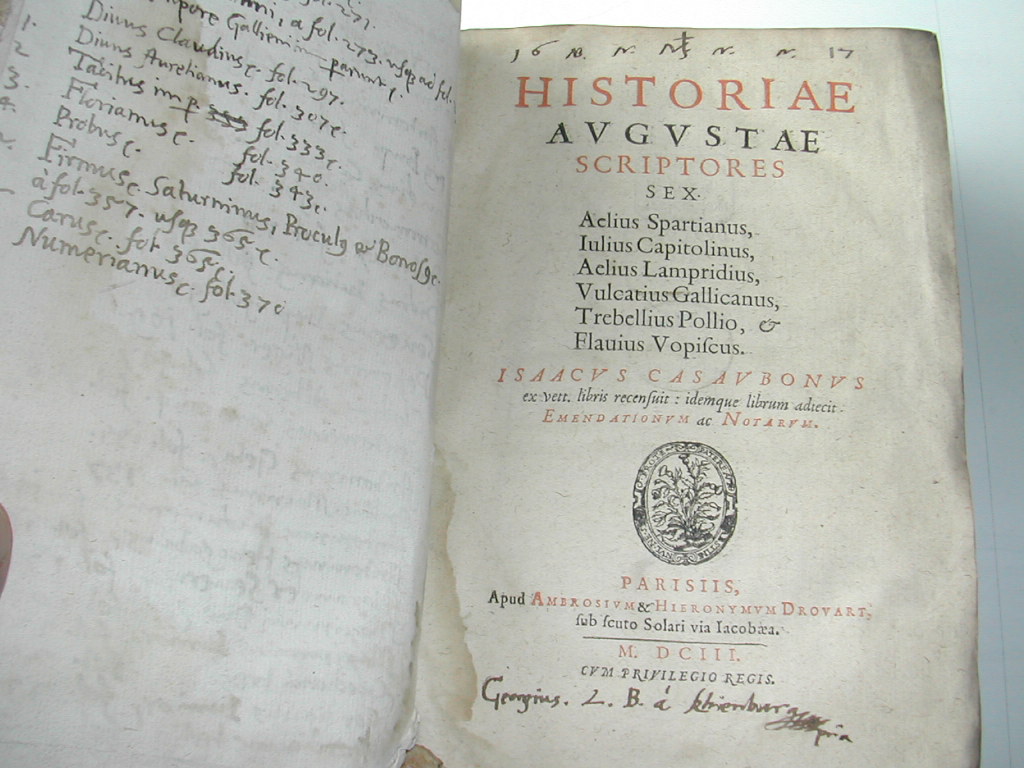 fol. 271.
à fol. 273. usq ad fol.
Gallieni
1. Divus Claudius c. fol. 297.
2 Divus Aurelianus. fol. 307 c.
3. Tacitus imp fol. 333 c.
4. Florianus c. fol. 340.
Probus c. fol. 343 c.
Firmus c. Saturninus, Proculq & Bonosq c.
à fol. 357. usq 365. c.
Carus c. fol. 365 c.
Numerianus c. fol. 370
16 17
HISTORIAE
AVGVSTAE
SCRIPTORES
SEX.
Aelius Spartianus,
Iulius Capitolinus,
Aelius Lampridius,
Vulcatius Gallicanus,
Trebellius Pollio, &
Flauius Vopiſcus.
ISAACVS CASAVBONVS
ex vett. libris recenſuit : idemque librum adiecit
EMENDATIONVM ac NOTARVM.
PARISIIS,
Apud AMBROSIVM & HIERONYMVM DROVART,
ſub ſcuto Solari via Iacobæa.
M. DCIII.
CVM PRIVILEGIO REGIS.
Georgius. L. B. á